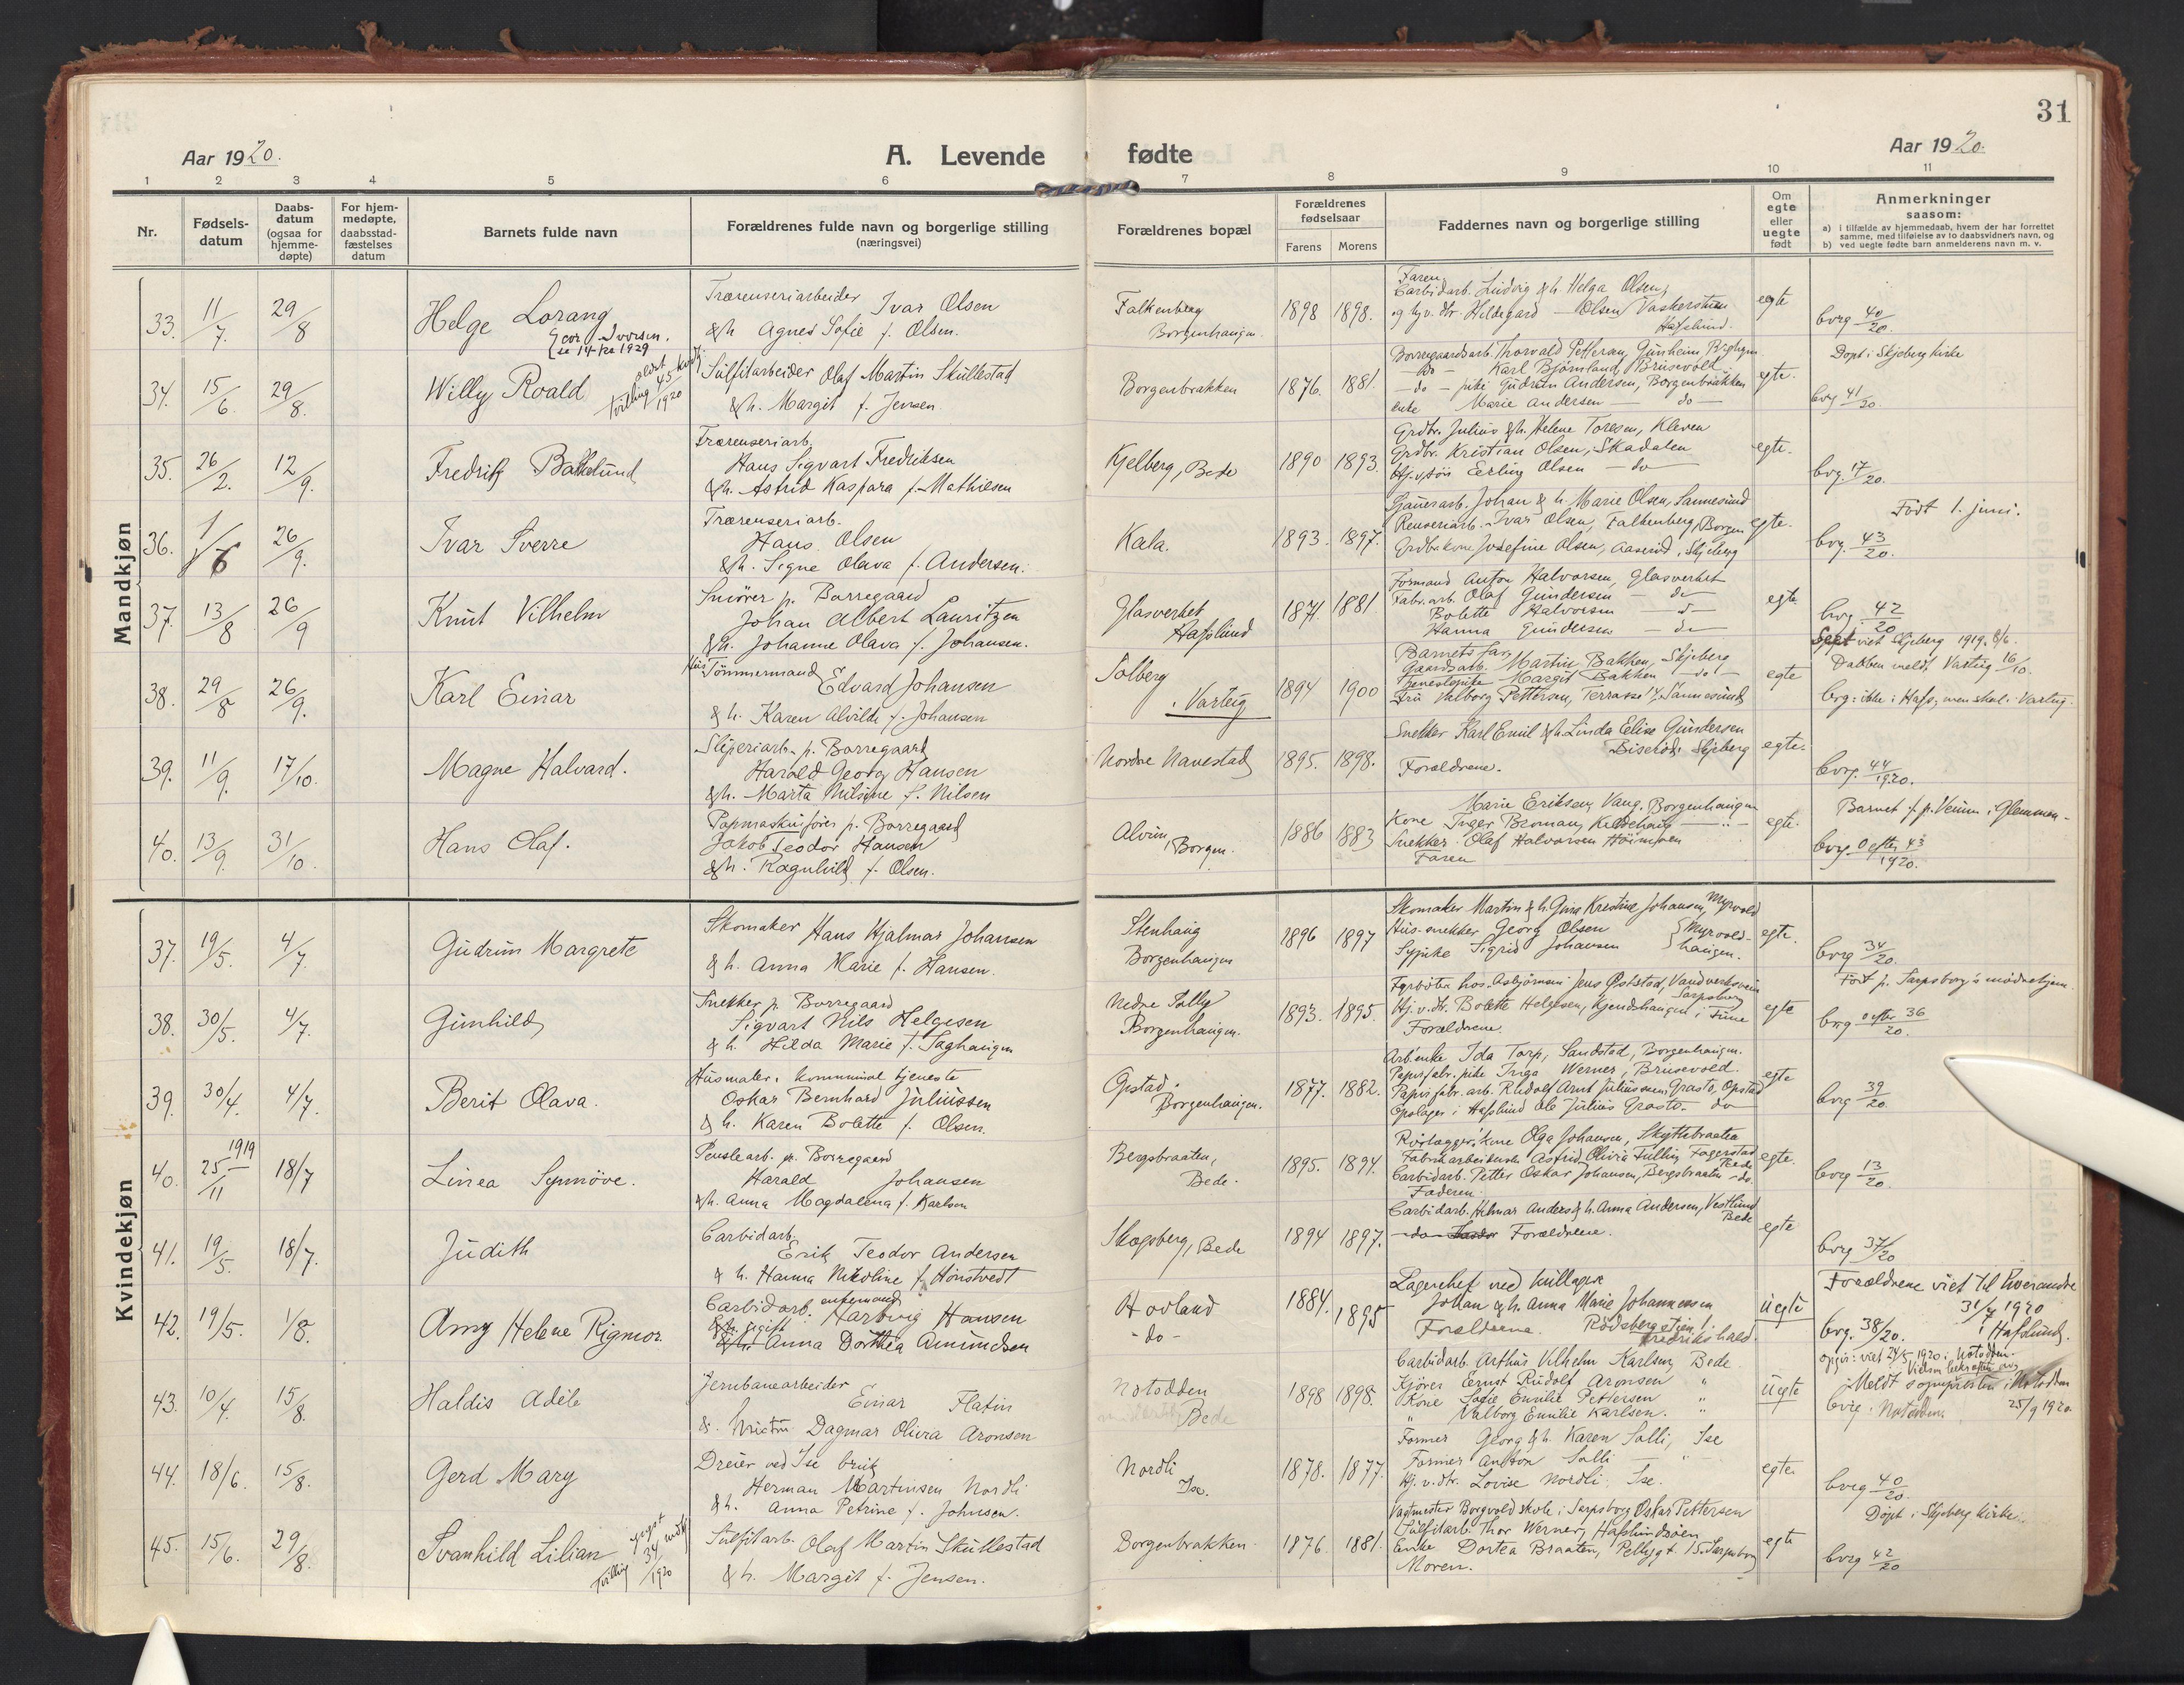 31
Aar 1920.
A. Levende fødte
Aar 1920.
1 2 3 4 5 6 7 8 9 10 11
Nr.
Fødsels-
datum
Daabs-
datum
(ogsaa for
hjemme-
døpte)
For hjem-
medøpte,
daabsstad-
fæstelses
datum
Barnets fulde navn
Forældrenes fulde navn og borgerlige stilling
(næringsvei)
Forældrenes bopæl
Forældrenes
fødselsaar
Farens Morens
Faddernes navn og borgerlige stilling
Om
egte
eller
uegte
født
Anmerkninger
saasom:
a) i tilfælde av hjemmedaab, hvem der har forrettet
samme, med tilføielse av to daabsvidners navn, og
b) ved uegte fødte barn anmelderens navn m. v.
Mandkjøn
33. 11/7. 29/8 Helge Lorang
Trærenseriarbeider Ivar Olsen
& h. Agnes Sofie f. Olsen.
Falkenberg
Borgenhaugen.
1898 1898.
Faren
Carbidarb. Ludvig & h. Helga Olsen,
og hjv. dtr. Hildegard — Olsen
Hafslund.
egte
bvrg 40/20.
34. 15/6. 29/8. Willy Roald
Tvilling 45/1920
Sulfitarbeider Olaf Martin Skullestad
& h. Margit f. Jensen.
Borgenbrakken
1876. 1881.
Borregaardsarb. Thorvald Pettersen,
— do — Karl Bjørnland, Brusevold
— do — pike Gudrun Andersen, Borgenbrakken
enke Marie Andersen — do —
egte.
Døpt i Skjeberg kirke
bvrg 41/20.
35. 26/2. 12/9. Fredrik
Trærenseriarb.
Hans Sigvart Fredriksen
& h. Astrid Kaspara f. Mathiesen
Kjelberg, Bede
1890 1893.
Grdbr. Julius & h. Helene Toresen, Kleven
Grdbr. Kristian Olsen, Skadalen
Hj.v. søn Erling Olsen — do —
egte.
bvrg. 17/20.
36. 1/6 26/9. Ivar Sverre
Trærenseriarb.
Hans Olsen
& h. Signe Olava f. Andersen.
Kala.
1893. 1897.
Johan & h. Marie Olsen, Sannesund
Renseriarb. Ivar Olsen, Falkenberg, Borgen
Grdbr.kone Josefine Olsen, Skjeberg
egte.
Født 1. juni.
bvrg. 43/20.
37. 13/8 26/9 Knut Vilhelm
Smører p. Borregaard
Johan Albert Lauritzen
& h. Johanne Olava f. Johansen.
Glasverket
Hafslund
1871. 1881
Formand Anton Halvorsen, Glasverket
Fabr. arb. Olaf Gundersen — do —
Bolette Halvorsen — do —
Hanna Gundersen — do —
egte
bvrg. 42/20
38. 29/8 26/9. Karl Einar
Hus Tømmermand Edvard Johansen
& h. Karen Alvilde f. Johansen
Solberg
i Varteig
1894 1900
Barnets far,
Gaardsarb. Martin Bakken, Skjeberg
Tjenestepike Margit Bakken — do —
Fru Valborg Pettersen, Terrasse 14, Sannesund
egte
viet Skjeberg 1919. 8/6.
Daaben meldt Varteig 16/10.
bvrg: ikke i Hafs., men skal i Varteig.
39. 11/9. 17/10. Magne Halvard.
Sliperiarb. p. Borregaard
Harald Georg Hansen
& h. Marta Nilsine f. Nilsen
Nordre Navestad
1895. 1898.
Snekker Karl Emil & h. Linda Elise Gundersen
Skjeberg
Forældrene.
egte.
bvrg. 44/1920.
40. 13/9. 31/10. Hans Olaf.
Papmaskinfører p. Borregaard
Jakob Teodor Hansen
& h. Ragnhild f. Olsen.
Alvim
Borgen.
1886 1883
Marie Eriksen, Vang, Borgenhaugen
Kone Inger Broman, Kildehaug — " —
Snekker Olaf Halvorsen
Faren
egte.
Barnet f. p. Venum i Glemmen.
bvrg. 0 efter 43/1920.
Kvindekjøn
37. 19/5. 4/7. Gudrun Margrete
Skomaker Hans Hjalmar Johansen
& h. Anna Marie f. Hansen.
Stenhaug
Borgenhaugen
1896 1897
Skomaker Martin & h. Gina Kristine Johansen, Myrvold
Hus-snekker Georg Olsen
Sypike Sigrid Johansen
Myrvold-
haugen.
egte.
bvrg 34/20.
38. 30/5. 4/7. Gunhild
Snekker p. Borregaard
Sigvart Nils Helgesen
& h. Hilda Marie f.
Nedre Solby
Borgenhaugen.
1893. 1895.
Fyrbøter hos Asbjørnsen Jens
Sarpsborg
Hj.v. dtr. Bolette Helgesen, i Tune
Forældrene.
egte
Født p. Sarpsborg's mødrehjem.
bvrg 0 efter 36/20.
39. 30/4. 4/7. Berit Olava.
Husmaler i kommunal tjeneste
Oskar Bernhard Juliussen
& h. Karen Bolette f. Olsen.
Opstad
Borgenhaugen.
1877. 1882.
Arb. enke Ida Torp, Sandstad, Borgenhaugen.
Papirfabr. pike Inga Werner, Brusevold.
Papirfabr. arb. Rudolf Arnt Juliussen Grasto, Opstad
Opslager i Hafslund Ole Julius Grasto — do —
egte
bvrg 39/20.
40. 25/11 1919 18/7 Linea Synnöve.
Penslearb. p. Borregaard
Harald Johansen
& h. Anna Magdalena f. Karlsen
Bergsbraaten,
Bede.
1895. 1894.
Rørlægger, kone Olga Johansen, Skyttebraaten
Fabrikarbeiderske Astrid Olivia Lilling Fagerstad
Bede
Carbidarb. Petter Oskar Johansen, Bergsbraaten - do.
Faderen.
egte.
bvrg 13/20.
41. 19/5. 18/7. Judith
Carbidarb.
Erik Teodor Andersen
& h. Hanna Nikoline f. Hønstvedt
Skogsberg, Bede
1894 1897.
Carbidarb. Helmar Anders & h. Anna Andersen, Vestlund
Bede
— do — Forældrene.
egte
bvrg 37/20
42. 19/5. 1/8. Amy Helene Rigmor.
Carbidarb. enkemand Hartvig Hansen
& ugift Anna Dorthea Amundsen
Hovland
- do -
1884. 1895
Lagerchef ved kullageret
Johan & h. Anna Marie Johannessen
Forældrene. Rødsbergstien 1.
Fredrikshald.
uegte
Forældrene viet til hverandre
31/7 1920
i Hafslund.
bvrg. 38/20.
43. 10/4. 15/8. Haldis Adele
Jernbanearbeider
Einar Flatin
& hustru Dagmar Olivia Aronsen
Notodden
Bede
1898 1898.
Carbidarb. Arthur Vilhelm Karlsen, Bede.
Kjører Ernst Rudolf Aronsen "
Kone Sofie Emilie Pettersen "
" Valborg Emilie Karlsen. "
uegte
opgir: viet 24/5 1920 i Notodden.
Meldt sogneprесten i Notodden
25/9 1920.
bvrg. Notodden.
44. 18/6. 15/8. Gerd Mary
Dreier ved Ise bruk
Herman Martinsen Nordli
& h. Anna Petrine f. Johnsen.
Nordli
Ise.
1878. 1877.
Former Georg & h. Karen Solli, Ise
Former Anton Solli — " —
Hj. v. dtr. Lovise Nordli, Ise.
egte.
bvrg 40/20.
45. 15/6. 29/8. Svanhild Lilian
yngst
Tvilling 34/1920
Sulfitarb. Olaf Martin Skullestad
& h. Margit f. Jensen.
Borgenbrakken
1876. 1881.
Vagtmester Borgvold skole i Sarpsborg Oskar Pettersen
Sulfitarb. Thor Werner, Hafslundsøen
Enke Dortea Braaten, Pellygt. 15. Sarpsborg
Moren.
egte
Døpt i Skjeberg kirke.
bvrg 42/20